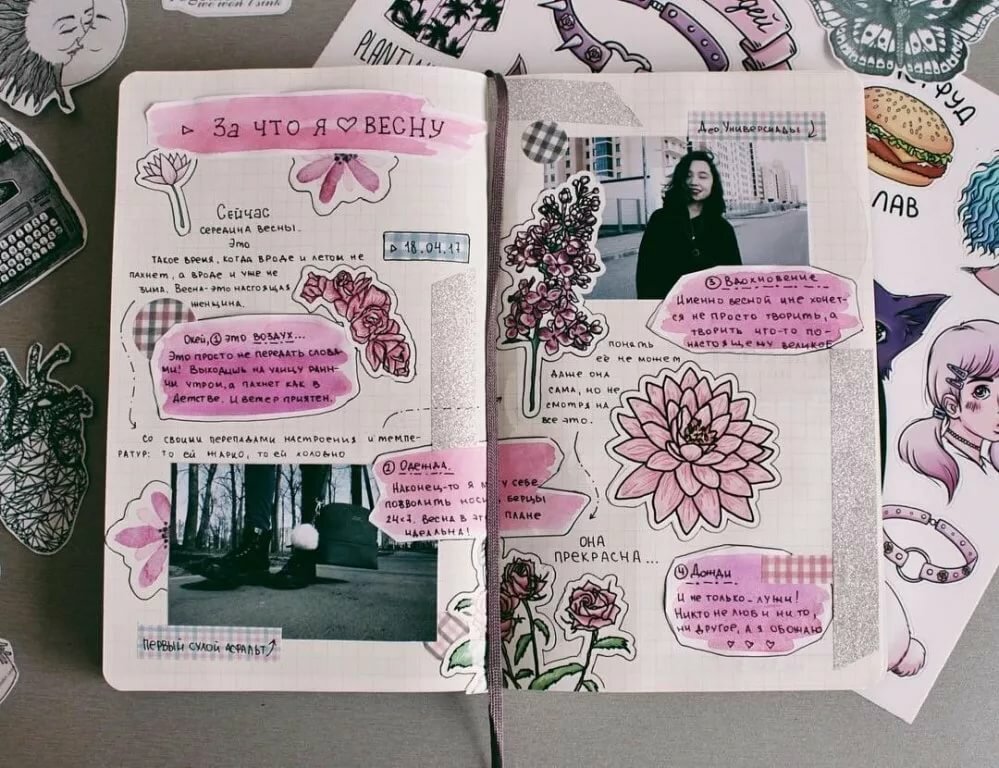 we won't sink
PLANTIN
ДЕЙ
ФУД
ЛАВ
▷ За что я ♡ ВЕСНУ
Сейчас
середина весны.
Это
такое время, когда вроде и летом не
пахнет, а вроде и уже не
зима. Весна-это настоящая
женщина.
▷ 18.04.17
Окей, ① это ВОЗДУХ...
Это просто не передать слова-
ми! Выходишь на улицу ранн-
им утром, а пахнет как в
детстве. И ветер приятен.
Со своими перепадами настроения и темпе-
ратур: то ей жарко, то ей холодно
② Одежда.
Наконец-то я м у себе
позволить носи берцы
24×7. Весна в эт плане
идеальна!
Первый сухой асфальт
Део Универсиады
③ Вдохновение
Именно весной мне хочет-
ся не просто творить, а
творить что-то по-
настоящему великое
понять
её не может
даже она
сама, но не
смотря на
все это.
ОНА
ПРЕКРАСНА...
④ Дожди
И не только - лужи!
Никто не люб ни то,
ни другое, а я обожаю
♡ ♡ ♡